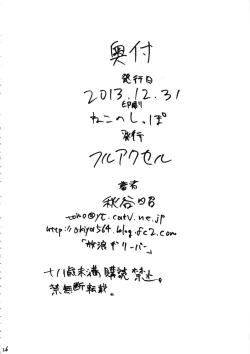 奥付
発行日
2013.12.31
印刷
ねこのしっぽ
発行
フルアクセル
著者
秋谷昭
http://akiya564.blog.fc2.com
「放浪ギリーバー」
十八歳未満購読禁止。
禁無断転載。
26